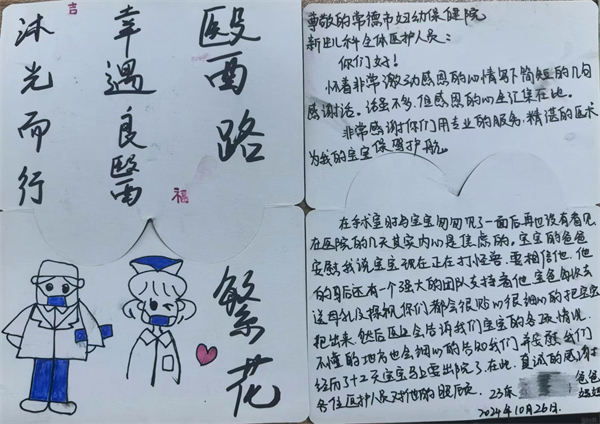 醫面
路
繁花
幸遇良醫
沐光而行
吉
福
尊敬的常德市妇幼保健院
新生儿科全体医护人员：
你们好！
怀着非常激动感恩的心情写下简短的几句
感谢话。话虽不多，但感恩的心全汇集在此。
非常感谢你们用专业的服务，精湛的医术
为我的宝宝保驾护航。
在手术室时与宝宝匆匆见了一面后再也没有看见
在医院的几天其实内心是焦虑的。宝宝的爸爸
安慰我说宝宝现在正在打怪兽，要相信他，他
的身后还有一个强大的团队支持着他，宝爸每次去
送母乳及探视你们都会很贴心很细心的把宝宝
抱出来，然后医生会告诉我们宝宝的各项情况，
不懂的地方也会细心的告知我们并安慰我们
经历了12天宝宝马上要出院了，在此，真诚的感谢
各位医护人员对他的照顾。
23床 爸爸
妈妈
2024年10月26日.